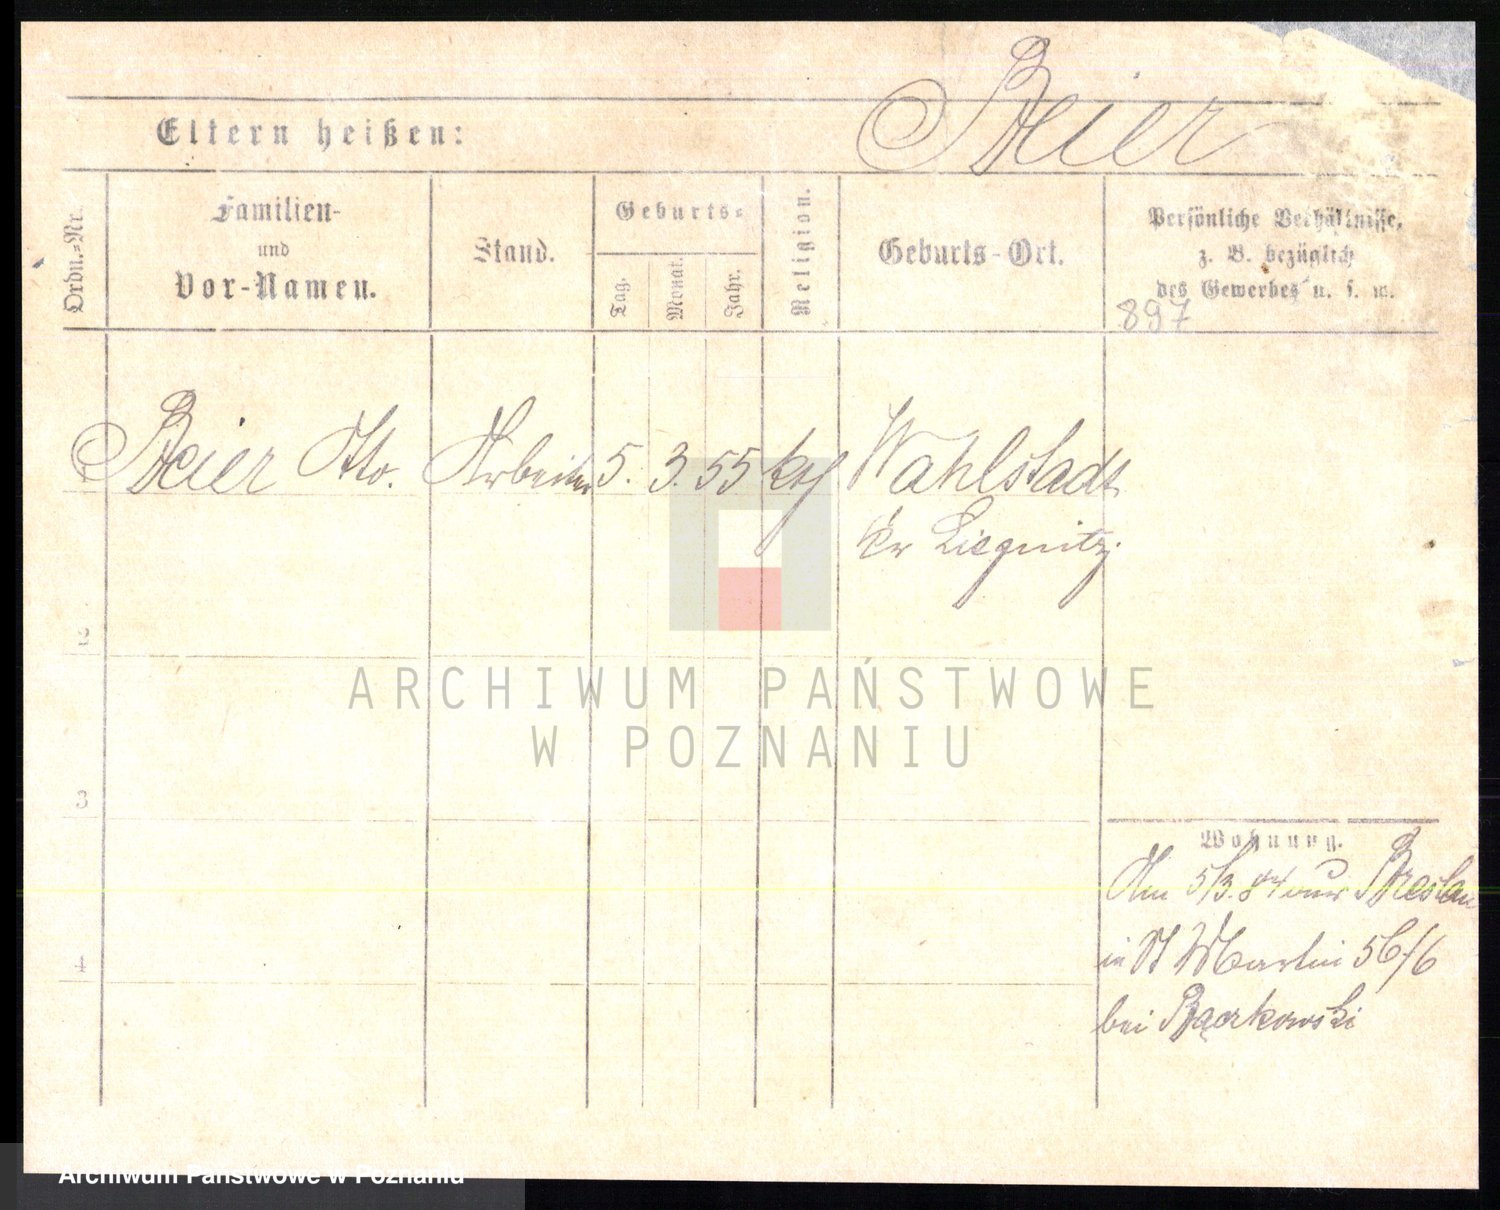 Beier
Eltern heißen:
Ordn.=Nr.
Familien-
und
Vor-Namen.
Stand.
Geburts=
Tag.
Monat.
Jahr.
Religion.
Geburts-Ort.
Persönliche Verhältnisse,
z. B. bezüglich
des Gewerbes u. s. w.
897
Beier Otto. Arbeiter 5. 3. 55 kth Wahlstadt
Kr Liegnitz
2
ARCHIWUM PAŃSTWOWE
W POZNANIU
3
Wohnung.
Am 5/3. 84 aus Breslau
4
in St Martin 56/6
bei Bączkowski
Archiwum Państwowe w Poznaniu